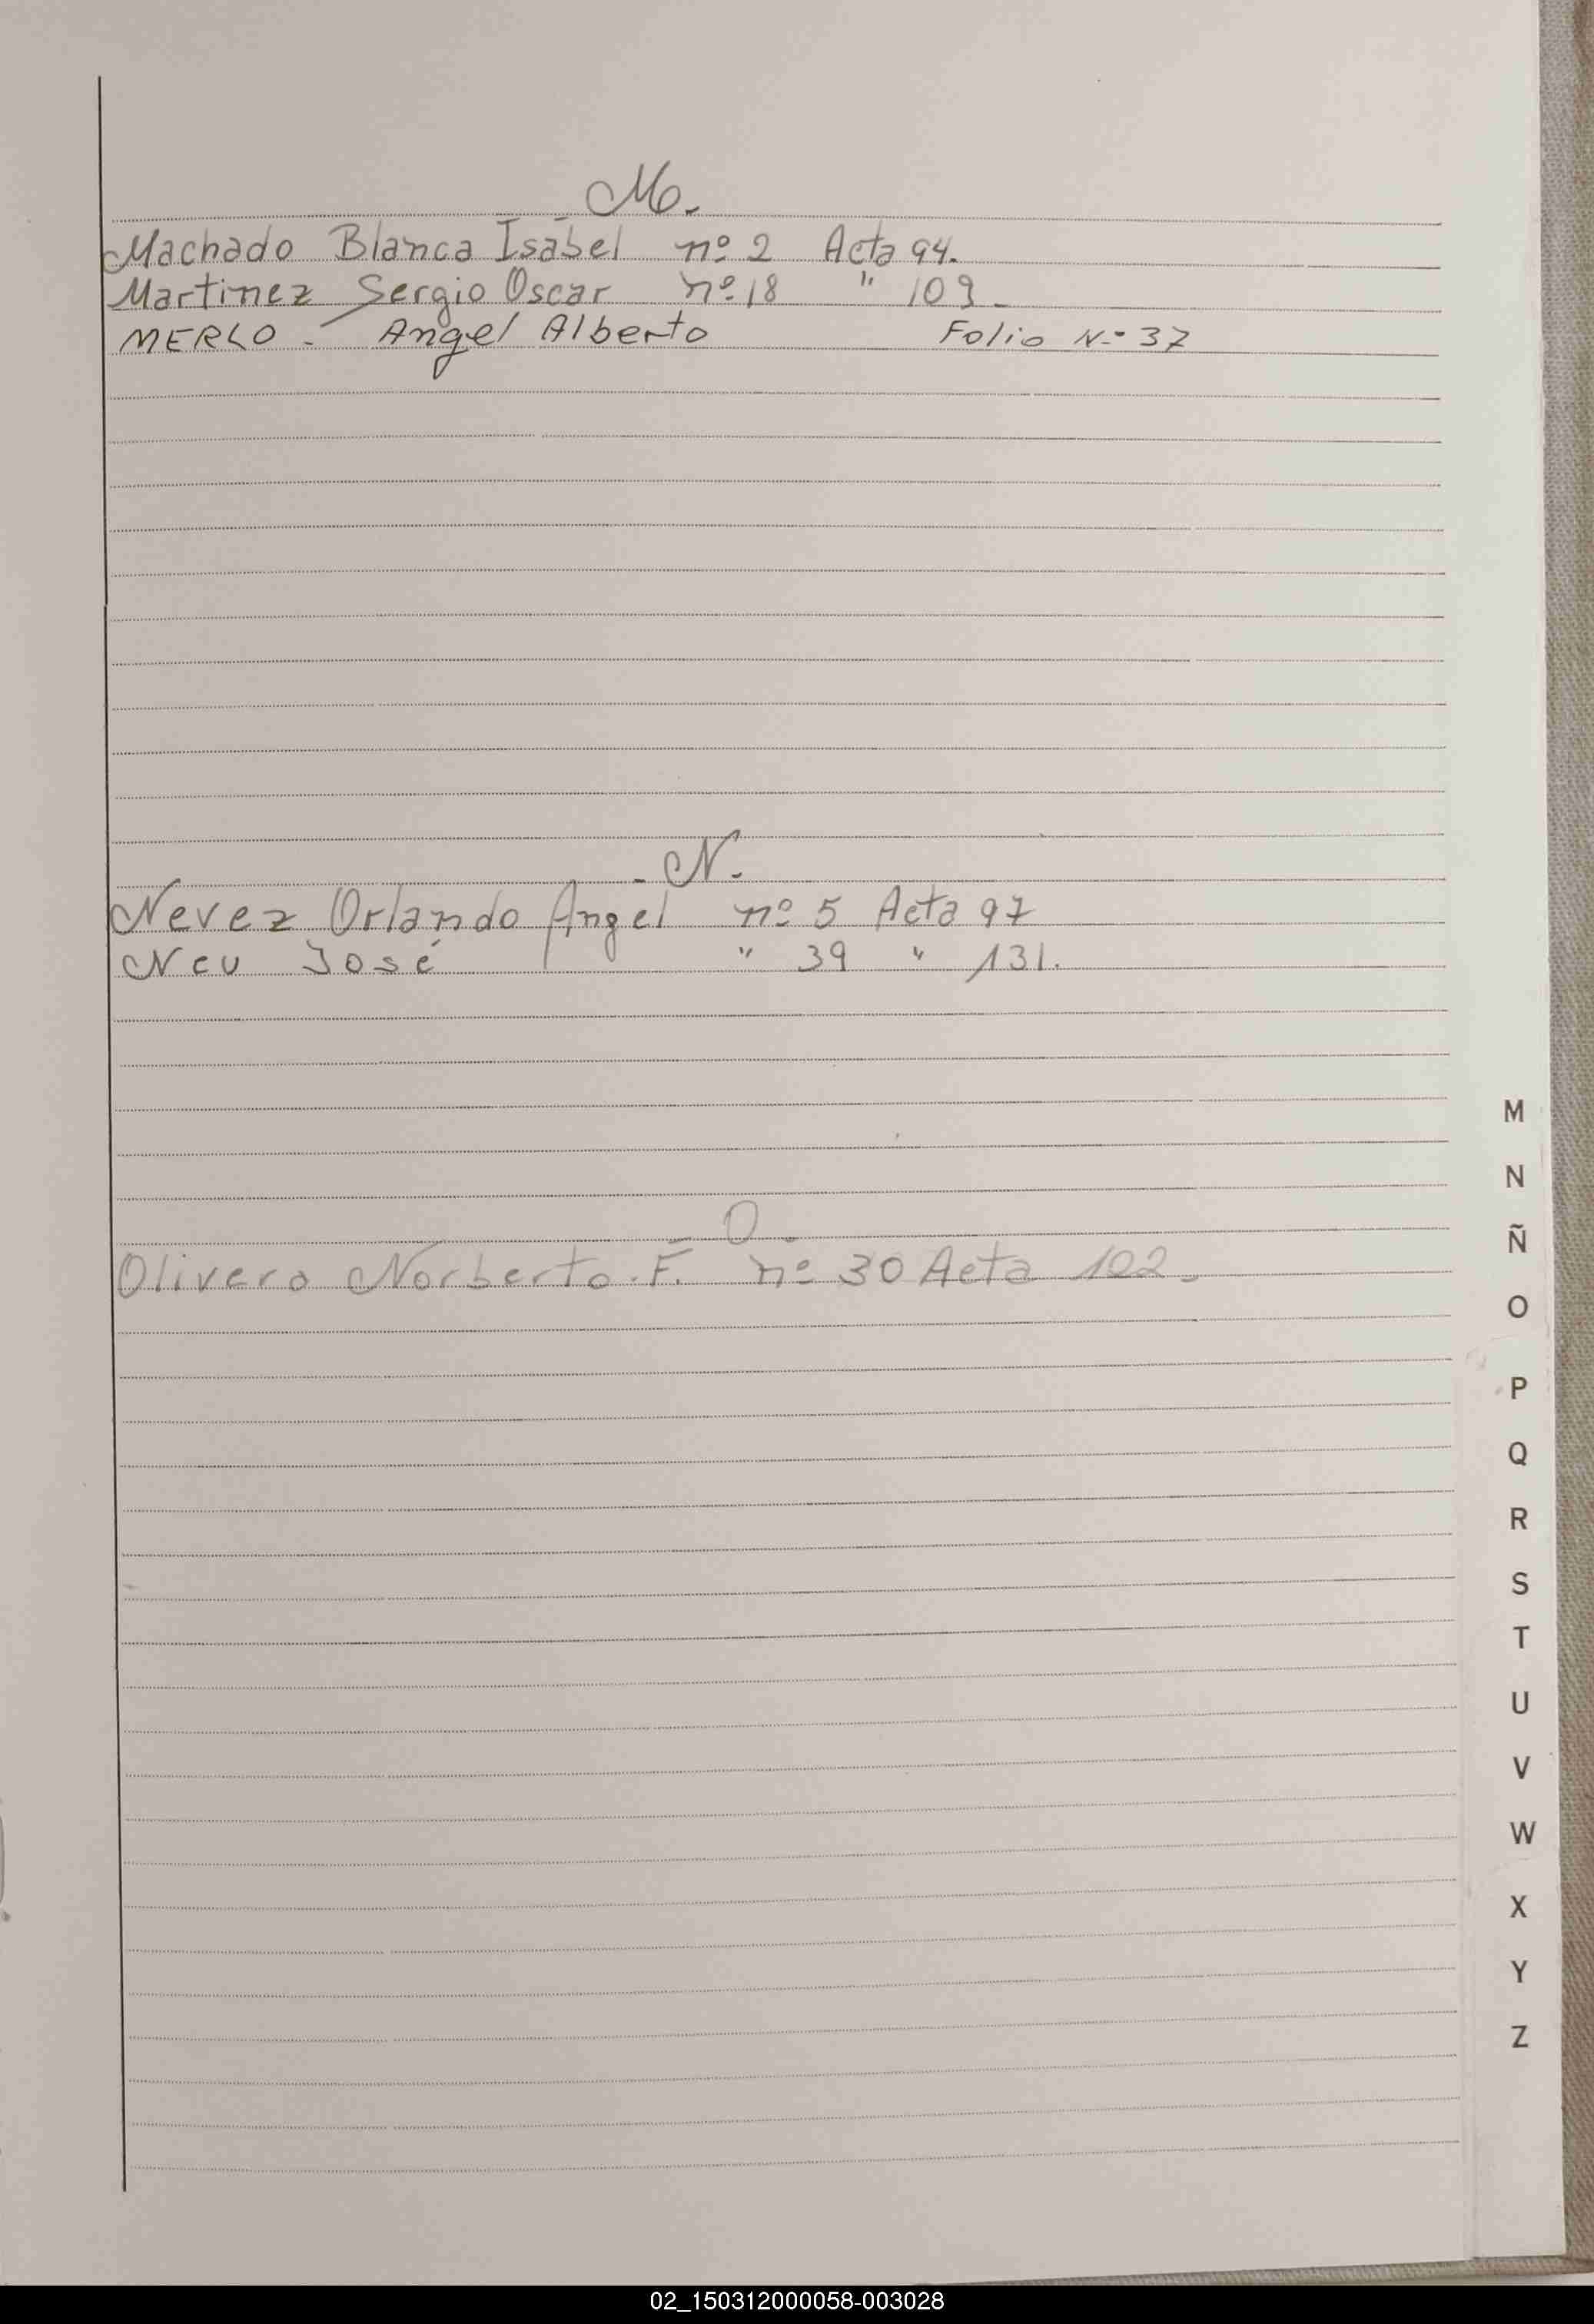 M.
Machado Blanca Isabel nº 2 Acta 94.
Martinez Sergio Oscar nº 18 " 109.
MERLO - Angel Alberto Folio Nº 37
- N.
Nevez Orlando Angel nº 5 Acta 97
Neu José " 39 " 131.
O.
Olivera Norberto. F. nº 30 Acta 122.
M
N
Ñ
O
P
Q
R
S
T
U
V
W
X
Y
Z
02_150312000058-003028